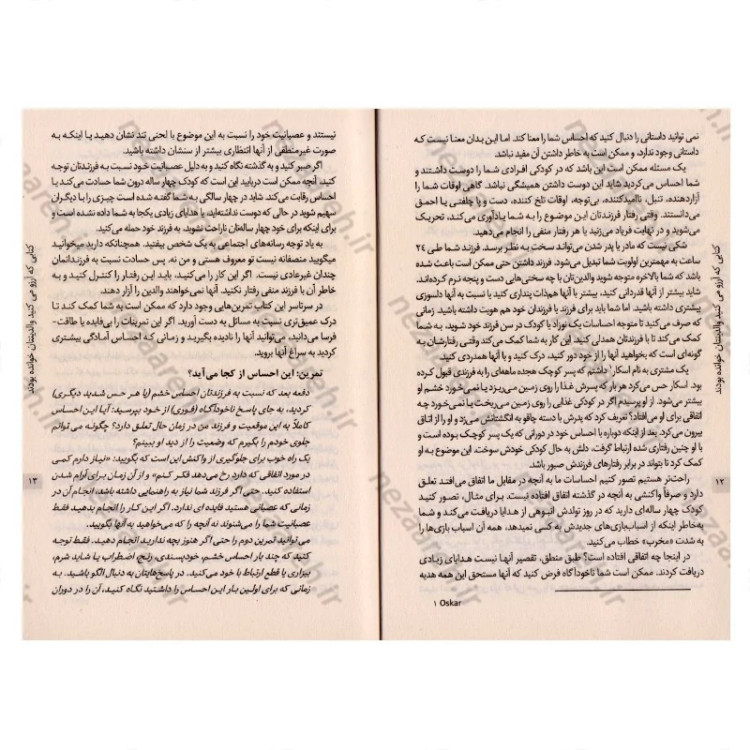 نمی توانید داستانی را دنبال کنید که احساس شما را معنا کند. اما این بدان معنا نیست که
داستانی وجود ندارد، و ممکن است به خاطر داشتن آن مفید نباشد.
یک مسئله ممکن است این باشد که در کودکی افرادی شما را دوست داشتند و
شما احساس می‌کردید شاید این دوست داشتن همیشگی نباشد. گاهی اوقات شما را
آزاردهنده، تنبل، ناامیدکننده، بی‌توجه، اوقات تلخ کننده، دست و پا چلفتی یا احمق
می‌دانستند. وقتی رفتار فرزندتان این موضوع را به شما یادآوری می‌کند، تحریک
می‌شوید و در نهایت فریاد می‌زنید یا هر رفتار منفی را انجام می‌دهید.
شکی نیست که مادر یا پدر شدن می‌تواند سخت به نظر برسد. فرزند شما طی ۲۴
ساعت به مهمترین اولویت شما تبدیل می‌شود. فرزند داشتن حتی ممکن است باعث شده
باشد که شما بالاخره متوجه شوید والدین‌تان با چه سختی‌هایی دست و پنجه نرم کرده‌اند.
شاید بیشتر از آنها قدردانی کنید، بیشتر با آنها همذات پنداری کنید یا نسبت به آنها دلسوزی
بیشتری داشته باشید. اما شما باید برای فرزند یا فرزندان خود هم هویت داشته باشید. زمانی
که صرف می‌کنید تا متوجه احساسات یک نوزاد یا کودک در سن فرزند خود شوید، به شما
کمک می‌کند تا با فرزندتان همدلی کنید. این کار به شما کمک می‌کند وقتی رفتارشان به
گونه‌ای است که بخواهید آنها را از خود دور کنید، درک کنید و با آنها همدردی کنید.
یک مشتری به نام اسکار۱ داشتم که پسر کوچک هجده ماهه‌ای را به فرزندی قبول کرده
بود. اسکار حس می‌کرد هر بار که پسرش غذا را روی زمین می‌ریزد یا نمی‌خورد خشم او
بیشتر می‌شود. از او پرسیدم اگر در کودکی غذایی را روی زمین می‌ریخت یا نمی‌خورد چه
اتفاقی برای او می‌افتاد؟ تعریف کرد که پدرش با دسته چاقو به انگشتانش می‌زد و او را از اتاق
بیرون می‌کرد. بعد از اینکه دوباره با احساس خود در دورانی که یک پسر کوچک بوده است و
با او چنین رفتاری شده ارتباط گرفت، دلش به حال کودکی خودش سوخت. این موضوع به او
کمک کرد تا بتواند در برابر رفتارهای فرزندش صبور باشد.
راحت‌تر هستیم تصور کنیم احساسات ما به آنچه در مقابل ما اتفاق می‌افتند تعلق
دارد و صرفاً واکنشی به آنچه در گذشته اتفاق افتاده نیست. برای مثال، تصور کنید
کودک چهار ساله‌ای دارید که در روز تولدش انبوهی از هدایا دریافت می‌کند و شما
به‌خاطر اینکه از اسباب‌بازی‌های جدیدش به کسی نمی‌دهد، همان آن اسباب بازی‌ها را
به شدت «مخرب» خطاب می‌کنید.
در اینجا چه اتفاقی افتاده است؟ طبق منطق، تقصیر آنها نیست هدایای زیادی
دریافت کردند. ممکن است شما ناخودآگاه فرض کنید که آنها مستحق این همه هدیه
۱ Oskar
۱۲
کتابی که آرزو می کنید والدینتان خوانده بودند
نیستند و عصبانیت خود را نسبت به این موضوع با لحنی تند نشان دهید یا اینکه به
صورت غیرمنطقی از آنها انتظاری بیشتر از سنشان داشته باشید.
اگر صبر کنید و به گذشته نگاه کنید و به دلیل عصبانیت خود نسبت به فرزندتان توجه
کنید، آنچه ممکن است دریابید این است که کودک چهار ساله درون شما حسادت می‌کند یا
احساس رقابت می‌کند. شاید در چهار سالگی به شما گفته شده است چیزی را با دیگران
سهیم شوید در حالی که دوست نداشته‌اید، یا هدایای زیادی یکجا به شما داده نشده است و
برای اینکه برای خود چهار سالگیتان ناراحت نشوید، به فرزند خود حمله می‌کنید.
به یاد توجه رسانه‌های اجتماعی به یک شخص بیفتید. همچنانکه دارید میخوانید
میگویید منصفانه نیست تو معروف هستی و من نه. پس حسادت نسبت به فرزندانمان
چندان غیرعادی نیست. اگر این کار را می‌کنید، باید این رفتار را کنترل کنید و به
خاطر آن با فرزند منفی رفتار نکنید. آنها نمی‌خواهند والدین را آزار دهند.
در سرتاسر این کتاب تمرین‌هایی وجود دارد که ممکن است به شما کمک کند تا
درک عمیق‌تری نسبت به مسائل به دست آورید. اگر این تمرینات را بی‌فایده یا طاقت-
فرسا می‌دانید، می‌توانید آنها را نادیده بگیرید و زمانی که احساس آمادگی بیشتری
کردید به سراغ آنها بروید.
تمرین: این احساس از کجا می‌آید؟
دفعه بعد که نسبت به فرزندتان احساس خشم (یا هر حس شدید دیگری)
کردید، به جای پاسخ ناخودآگاه (فوری) از خود بپرسید: آیا این احساس
کاملاً به این موقعیت و فرزند من در زمان حال تعلق دارد؟ چگونه می توانم
جلوی خودم را بگیرم که وضعیت را از دید او ببینم؟
یک راه خوب برای جلوگیری از واکنش این است که بگویید: «نیاز دارم کمی
در مورد اتفاقی که دارد رخ می‌دهد فکر کنم» و از آن زمان برای آرام شدن
استفاده کنید. حتی اگر فرزند شما نیاز به راهنمایی داشته باشد، انجام آن در
زمانی که عصبانی هستید فایده ای ندارد. اگر این کار را انجام بدهید فقط
عصبانیت شما را می‌شنوند نه آنچه را که می‌خواهید به آنها بگویید.
می‌توانید تمرین دوم را حتی اگر هنوز بچه ندارید انجام دهید. فقط توجه
کنید که چند بار احساس خشم، خودپسندی، رنج، اضطراب یا شاید شرم،
بیزاری یا قطع ارتباط با خود می‌کنید. در پاسخ‌هایتان به دنبال الگو باشید. به
زمانی که برای اولین بار این احساس را داشتید نگاه کنید، آن را در دوران
۱۳
کتابی که آرزو می کنید والدینتان خوانده بودند
nezaareh.ir